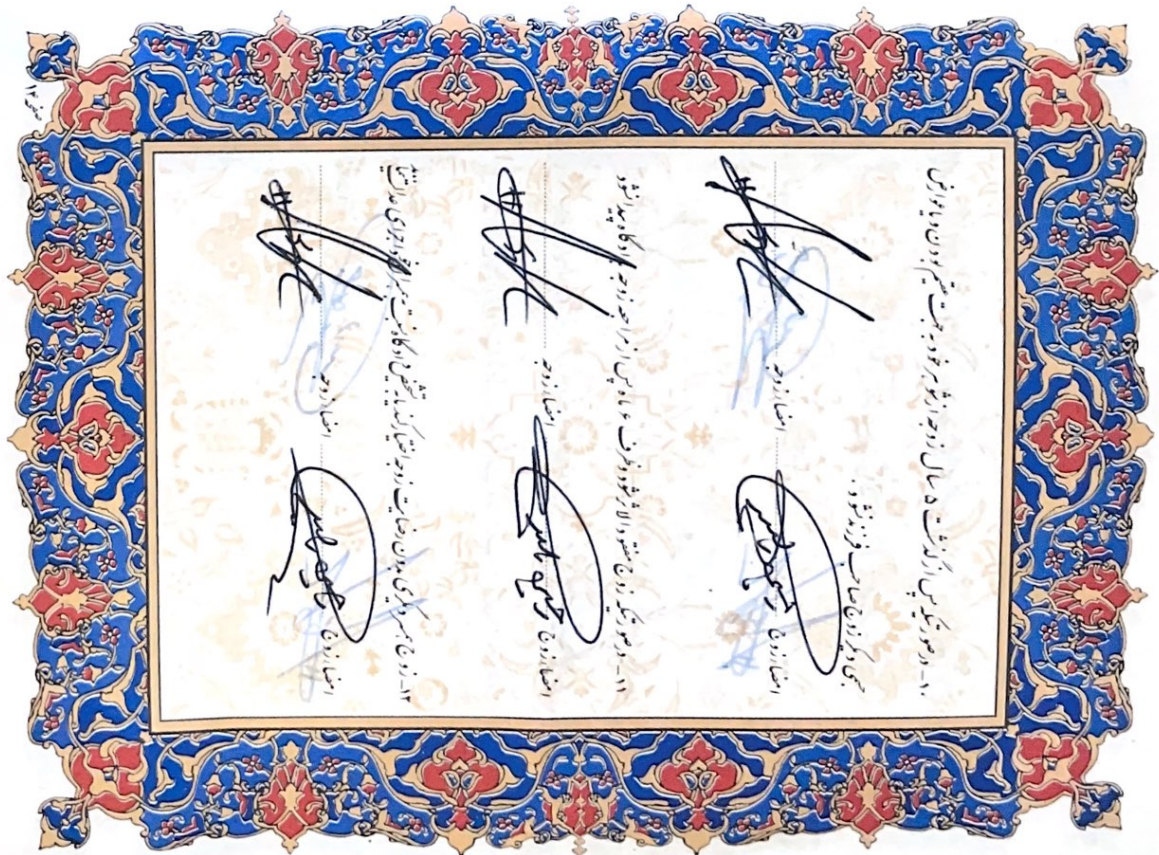 ۱۰- در صورتیکه پس از گذشت ۵ سال زوجه از شوهر خود به جهت عقیم بودن و یا عوارض
جسمی دیگر زوج صاحب فرزند نشود.
امضاء زوج
امضاء زوجه
۱۱- در صورتیکه زوج مفقود الاثر شود و ظرف ۶ ماه پس از مراجعه زوجه به دادگاه پیدا نشود
امضاء زوج
امضاء زوجه
۱۲- زوج همسر دیگری بدون رضایت زوجه اختیار کند یا به تشخیص دادگاه نسبت به همسران خود اجرای عدالت ننماید
امضاء زوج
امضاء زوجه